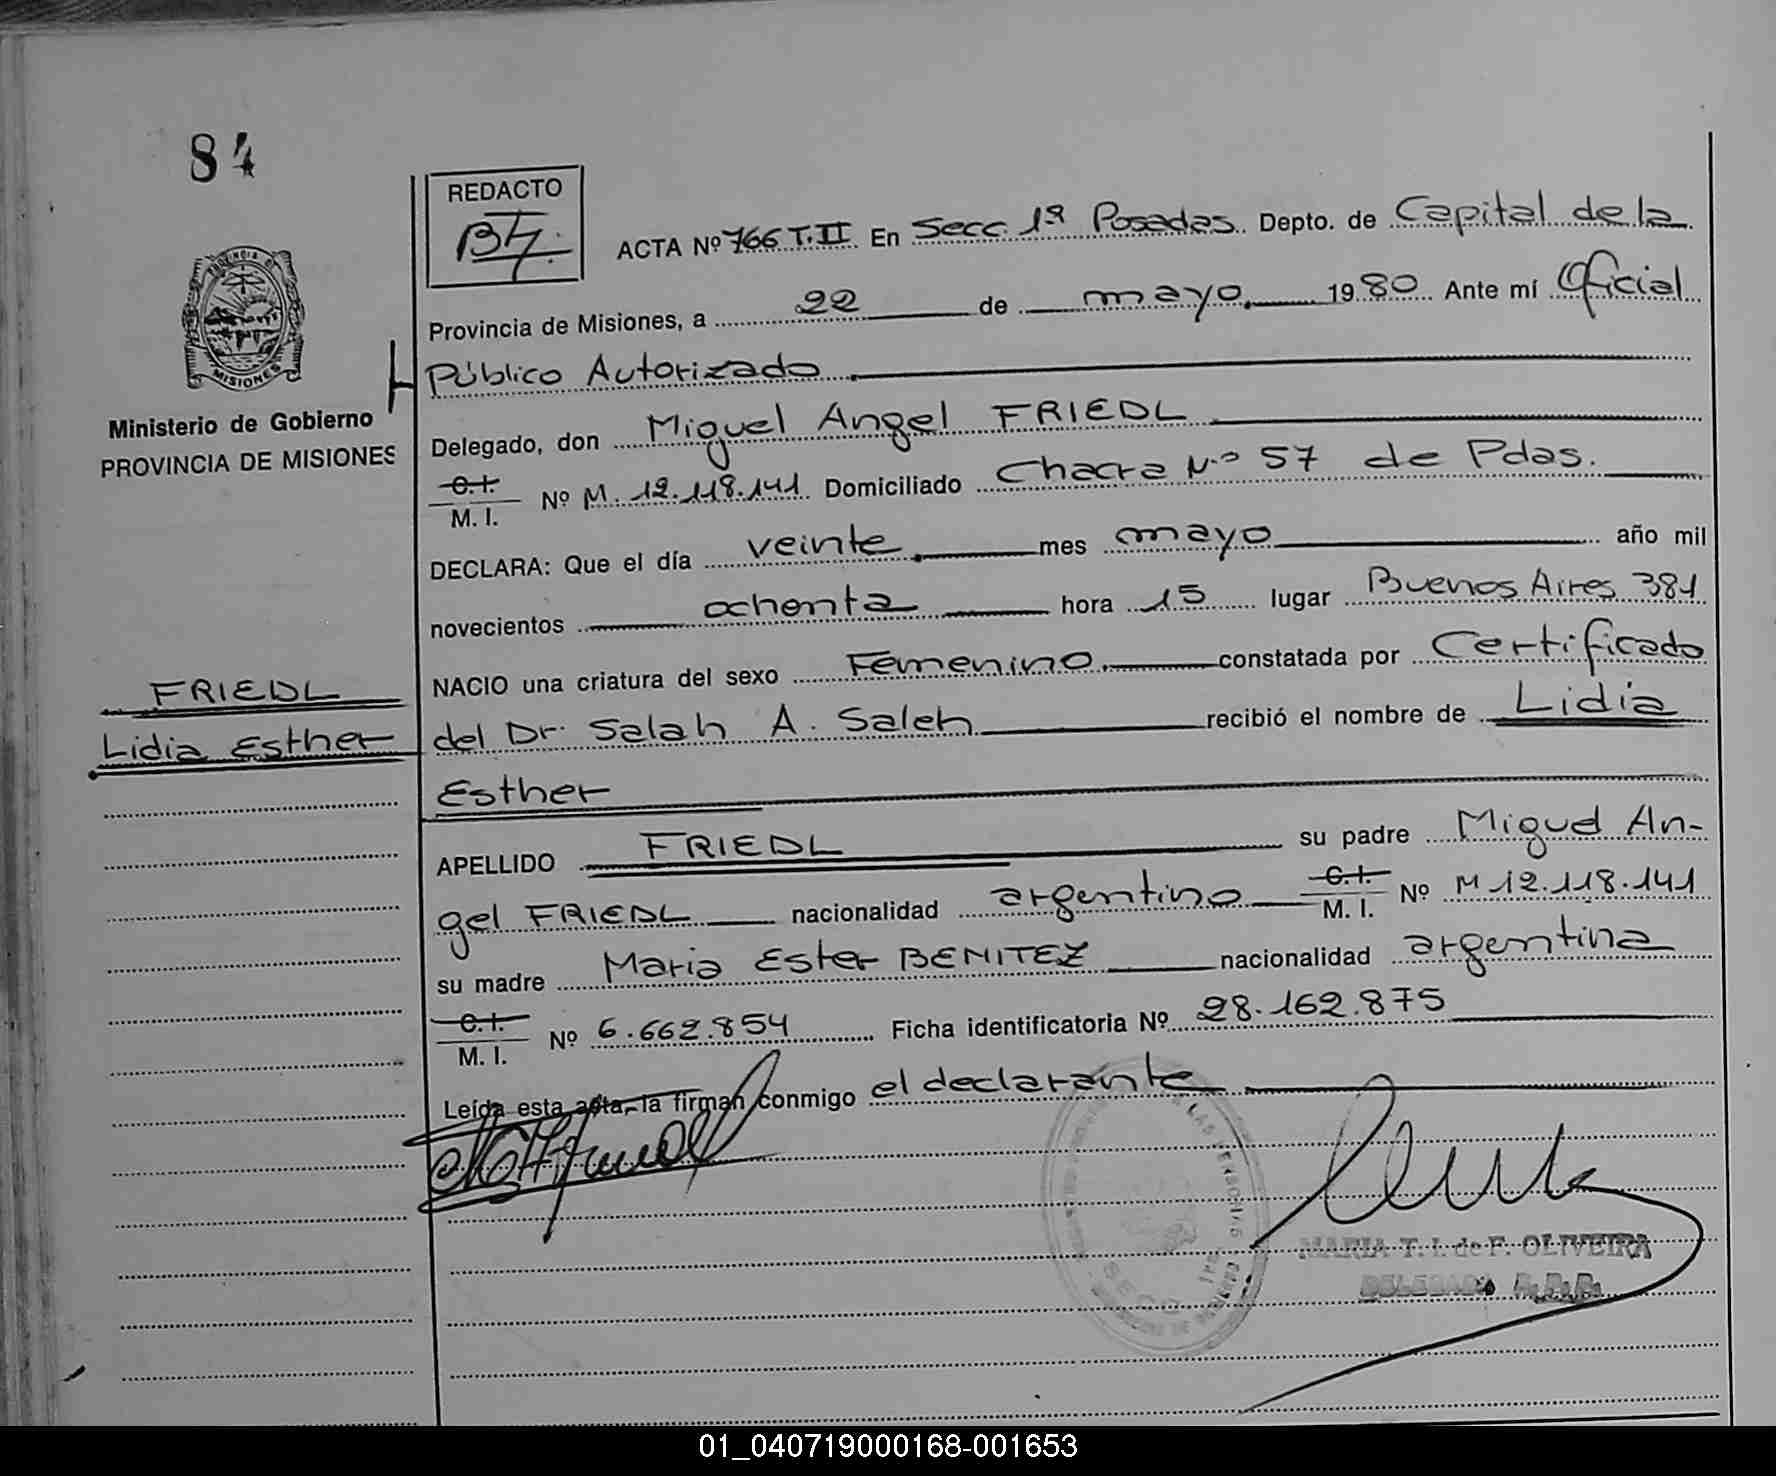 84
REDACTO
ACTA Nº 766 T.II En Secc. 1ª Posadas. Depto. de Capital de la
Provincia de Misiones, a 22 de mayo 1980 Ante mí Oficial
Público Autorizado
MISIONES
Ministerio de Gobierno
PROVINCIA DE MISIONES
Delegado, don Miguel Angel FRIEDL
C.I.
M. I. Nº M. 12.118.141 Domiciliado Chacra N.º 57 de Pdas.
DECLARA: Que el día veinte mes mayo año mil
novecientos ochenta hora 15 lugar Buenos Aires 381
NACIO una criatura del sexo Femenino constatada por Certificado
FRIEDL
Lidia Esther
del Dr. Salah A. Saleh recibió el nombre de Lidia
Esther
APELLIDO FRIEDL su padre Miguel An-
gel FRIEDL nacionalidad argentino C.I. M. I. Nº M 12.118.141
su madre Maria Ester BENITEZ nacionalidad argentina
C.I.
M. I. Nº 6.662.854 Ficha identificatoria Nº 28.162.875
Leída esta acta, la firman conmigo el declarante
MARIA T. I. de F. OLIVEIRA
DELEGADA R.P.P.
01_040719000168-001653